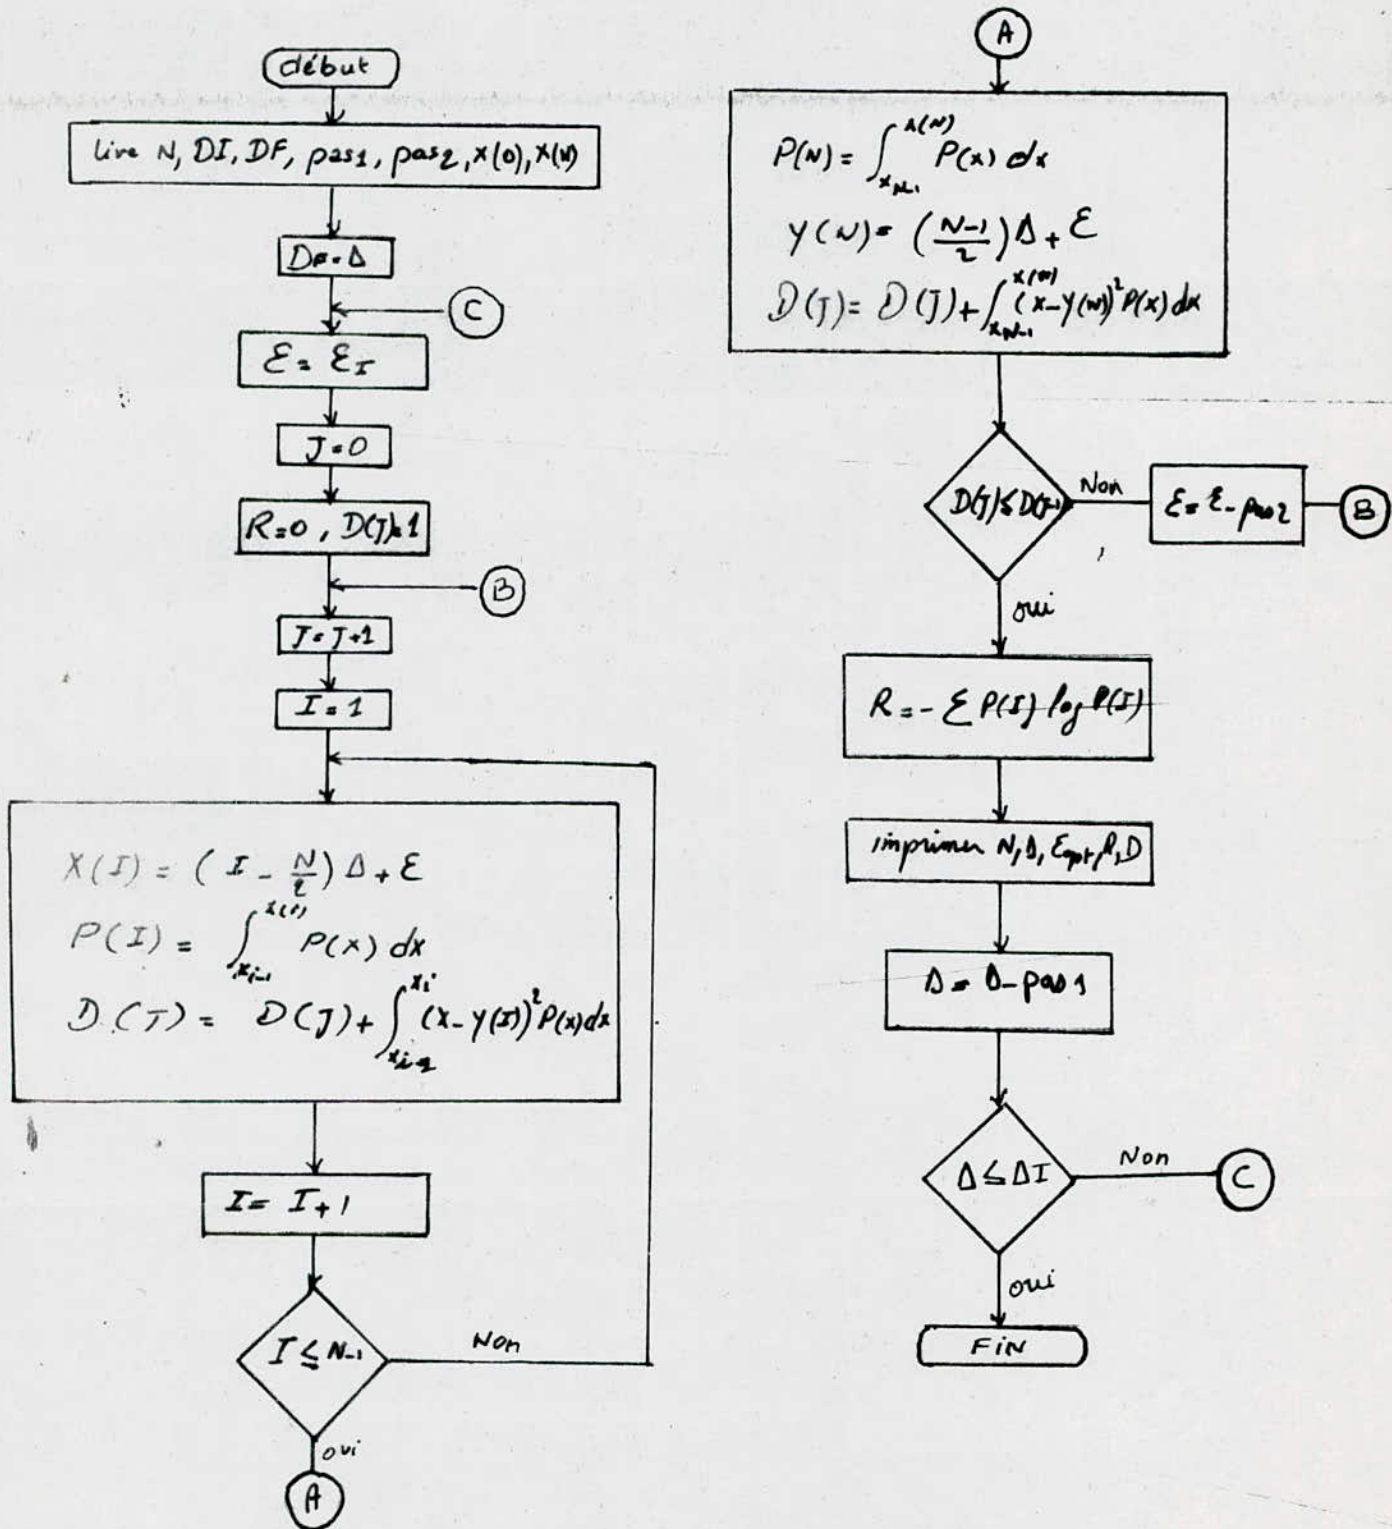 début
Lire N, DI, DF, pas1, pas2, X(0), X(N)
DF=Δ
C
Ɛ = Ɛ_I
J=0
R=0, D(J)=1
B
J=J+1
I=1
X(I) = (I - N/2) Δ + Ɛ
P(I) = ∫_{x_{i-1}}^{x(i)} P(x) dx
D(J) = D(J) + ∫_{x_{i-1}}^{x_i} (x - Y(I))² P(x) dx
I = I+1
I ≤ N-1
Non
oui
A
A
P(N) = ∫_{x_{N-1}}^{x(N)} P(x) dx
Y(N) = ((N-1)/2) Δ + Ɛ
D(J) = D(J) + ∫_{x_{N-1}}^{x(N)} (x - Y(N))² P(x) dx
D(J) ≤ D(J-1)
Non
Ɛ = Ɛ - pas2
B
oui
R = - Σ P(I) log P(I)
imprimer N, Δ, Ɛopt, R, D
Δ = Δ - pas1
Δ ≤ ΔI
Non
C
oui
FIN